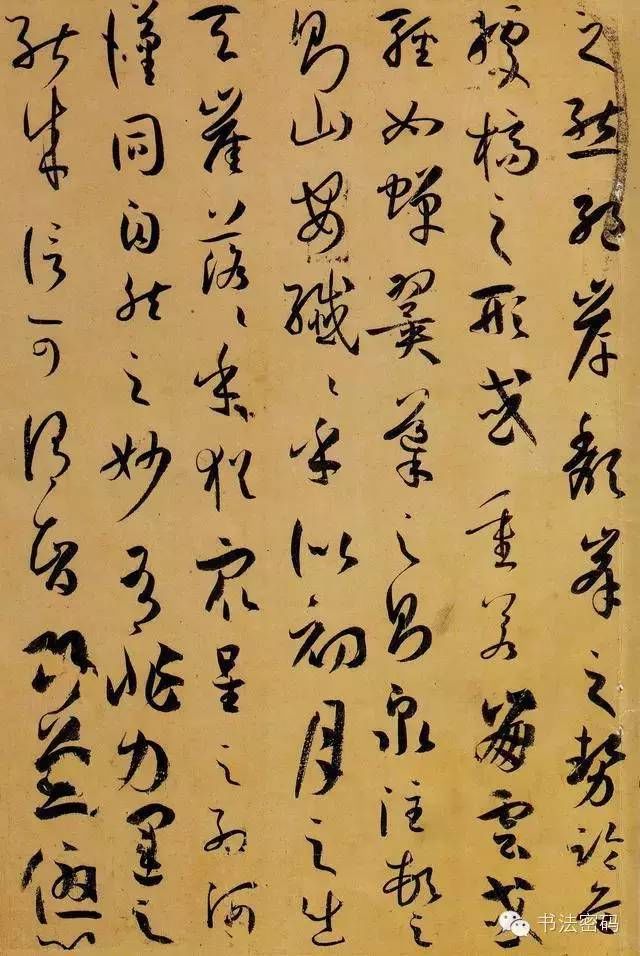 之態絶岸頽峯之勢臨危
據槁之形或重若崩雲或
輕如蟬翼導之則泉注頓之
則山安纖〻乎似初月之出
天崖落〻乎猶衆星之列河
漢同自然之妙有非力運之
能成信可謂智巧兼優心
书法密码